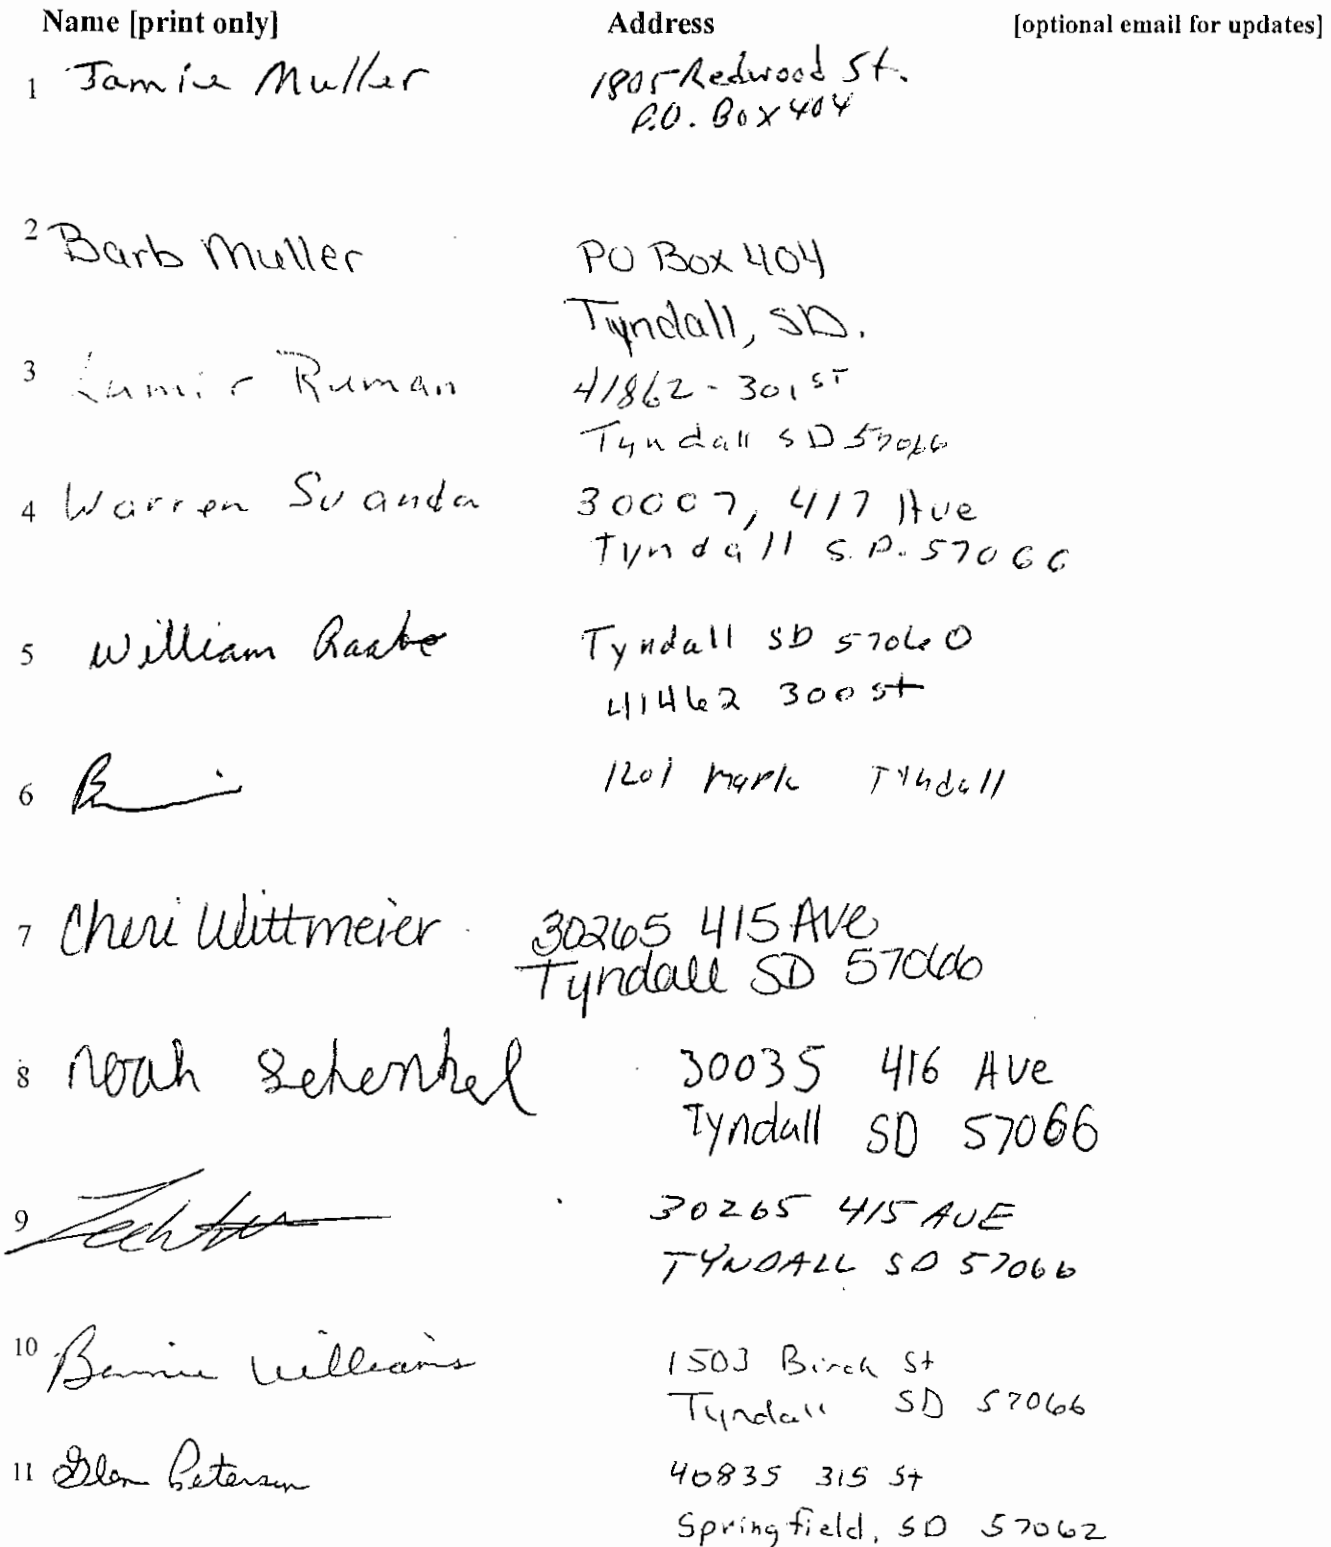 Name [print only] Address [optional email for updates]
1 Jamie Muller 1805 Redwood St.
P.O. Box 404
2 Barb Muller PO Box 404
Tyndall, SD.
3 Ruman 41862 - 301 ST
Tyndall SD 57066
4 Warren Svanda 30007, 417 Ave
Tyndall S.D. 57066
5 William Raabe Tyndall SD 57060
41462 300 st
6 1201 Tyndall
7 Cheri Wittmeier 30265 415 Ave
Tyndall SD 57066
8 Noah Schenkel 30035 416 Ave
Tyndall SD 57066
9 30265 415 AVE
TYNDALL SD 57066
10 Williams 1503 Birch St
Tyndall SD 57066
11 Glen Peterson 40835 315 St
Springfield, SD 57062